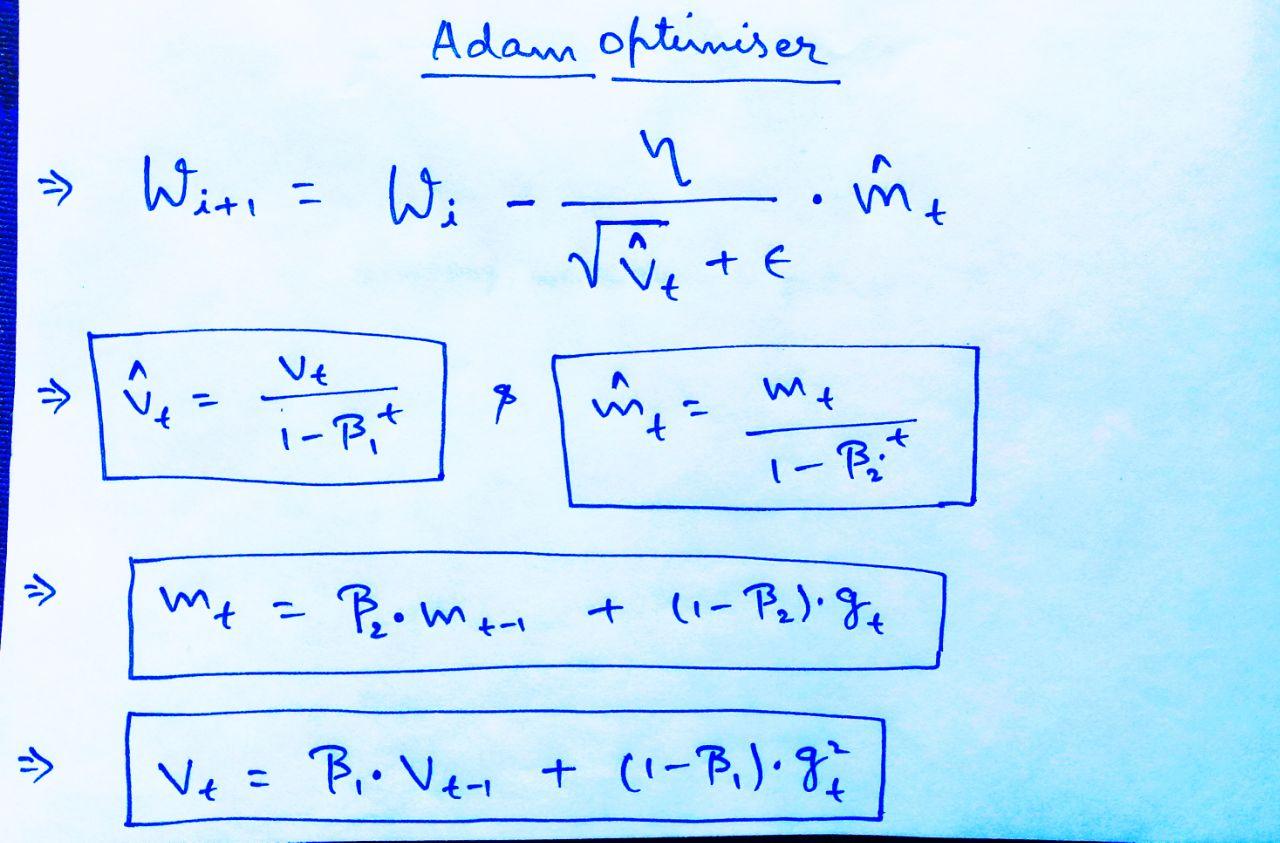 Adam optimiser
⇒ W_{i+1} = W_i - \frac{η}{\sqrt{\hat{V}_t} + ϵ} · \hat{m}_t
⇒ \hat{V}_t = \frac{V_t}{1 - β_1^t} & \hat{m}_t = \frac{m_t}{1 - β_2^t}
⇒ m_t = β_2 · m_{t-1} + (1 - β_2) · g_t
⇒ V_t = β_1 · V_{t-1} + (1 - β_1) · g_t^2